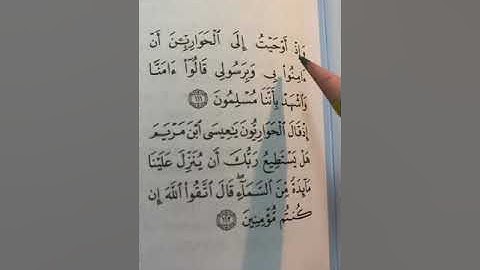 وَإِذْ أَوْحَيْتُ إِلَى ٱلْحَوَارِيِّـۧنَ أَنْ
ءَامِنُوا۟ بِى وَبِرَسُولِى قَالُوٓا۟ ءَامَنَّا
وَٱشْهَدْ بِأَنَّنَا مُسْلِمُونَ ﴿١١١﴾
إِذْ قَالَ ٱلْحَوَارِيُّونَ يَـٰعِيسَى ٱبْنَ مَرْيَمَ
هَلْ يَسْتَطِيعُ رَبُّكَ أَن يُنَزِّلَ عَلَيْنَا
مَآئِدَةً مِّنَ ٱلسَّمَآءِ ۖ قَالَ ٱتَّقُوا۟ ٱللَّهَ إِن
كُنتُم مُّؤْمِنِينَ ﴿١١٢﴾